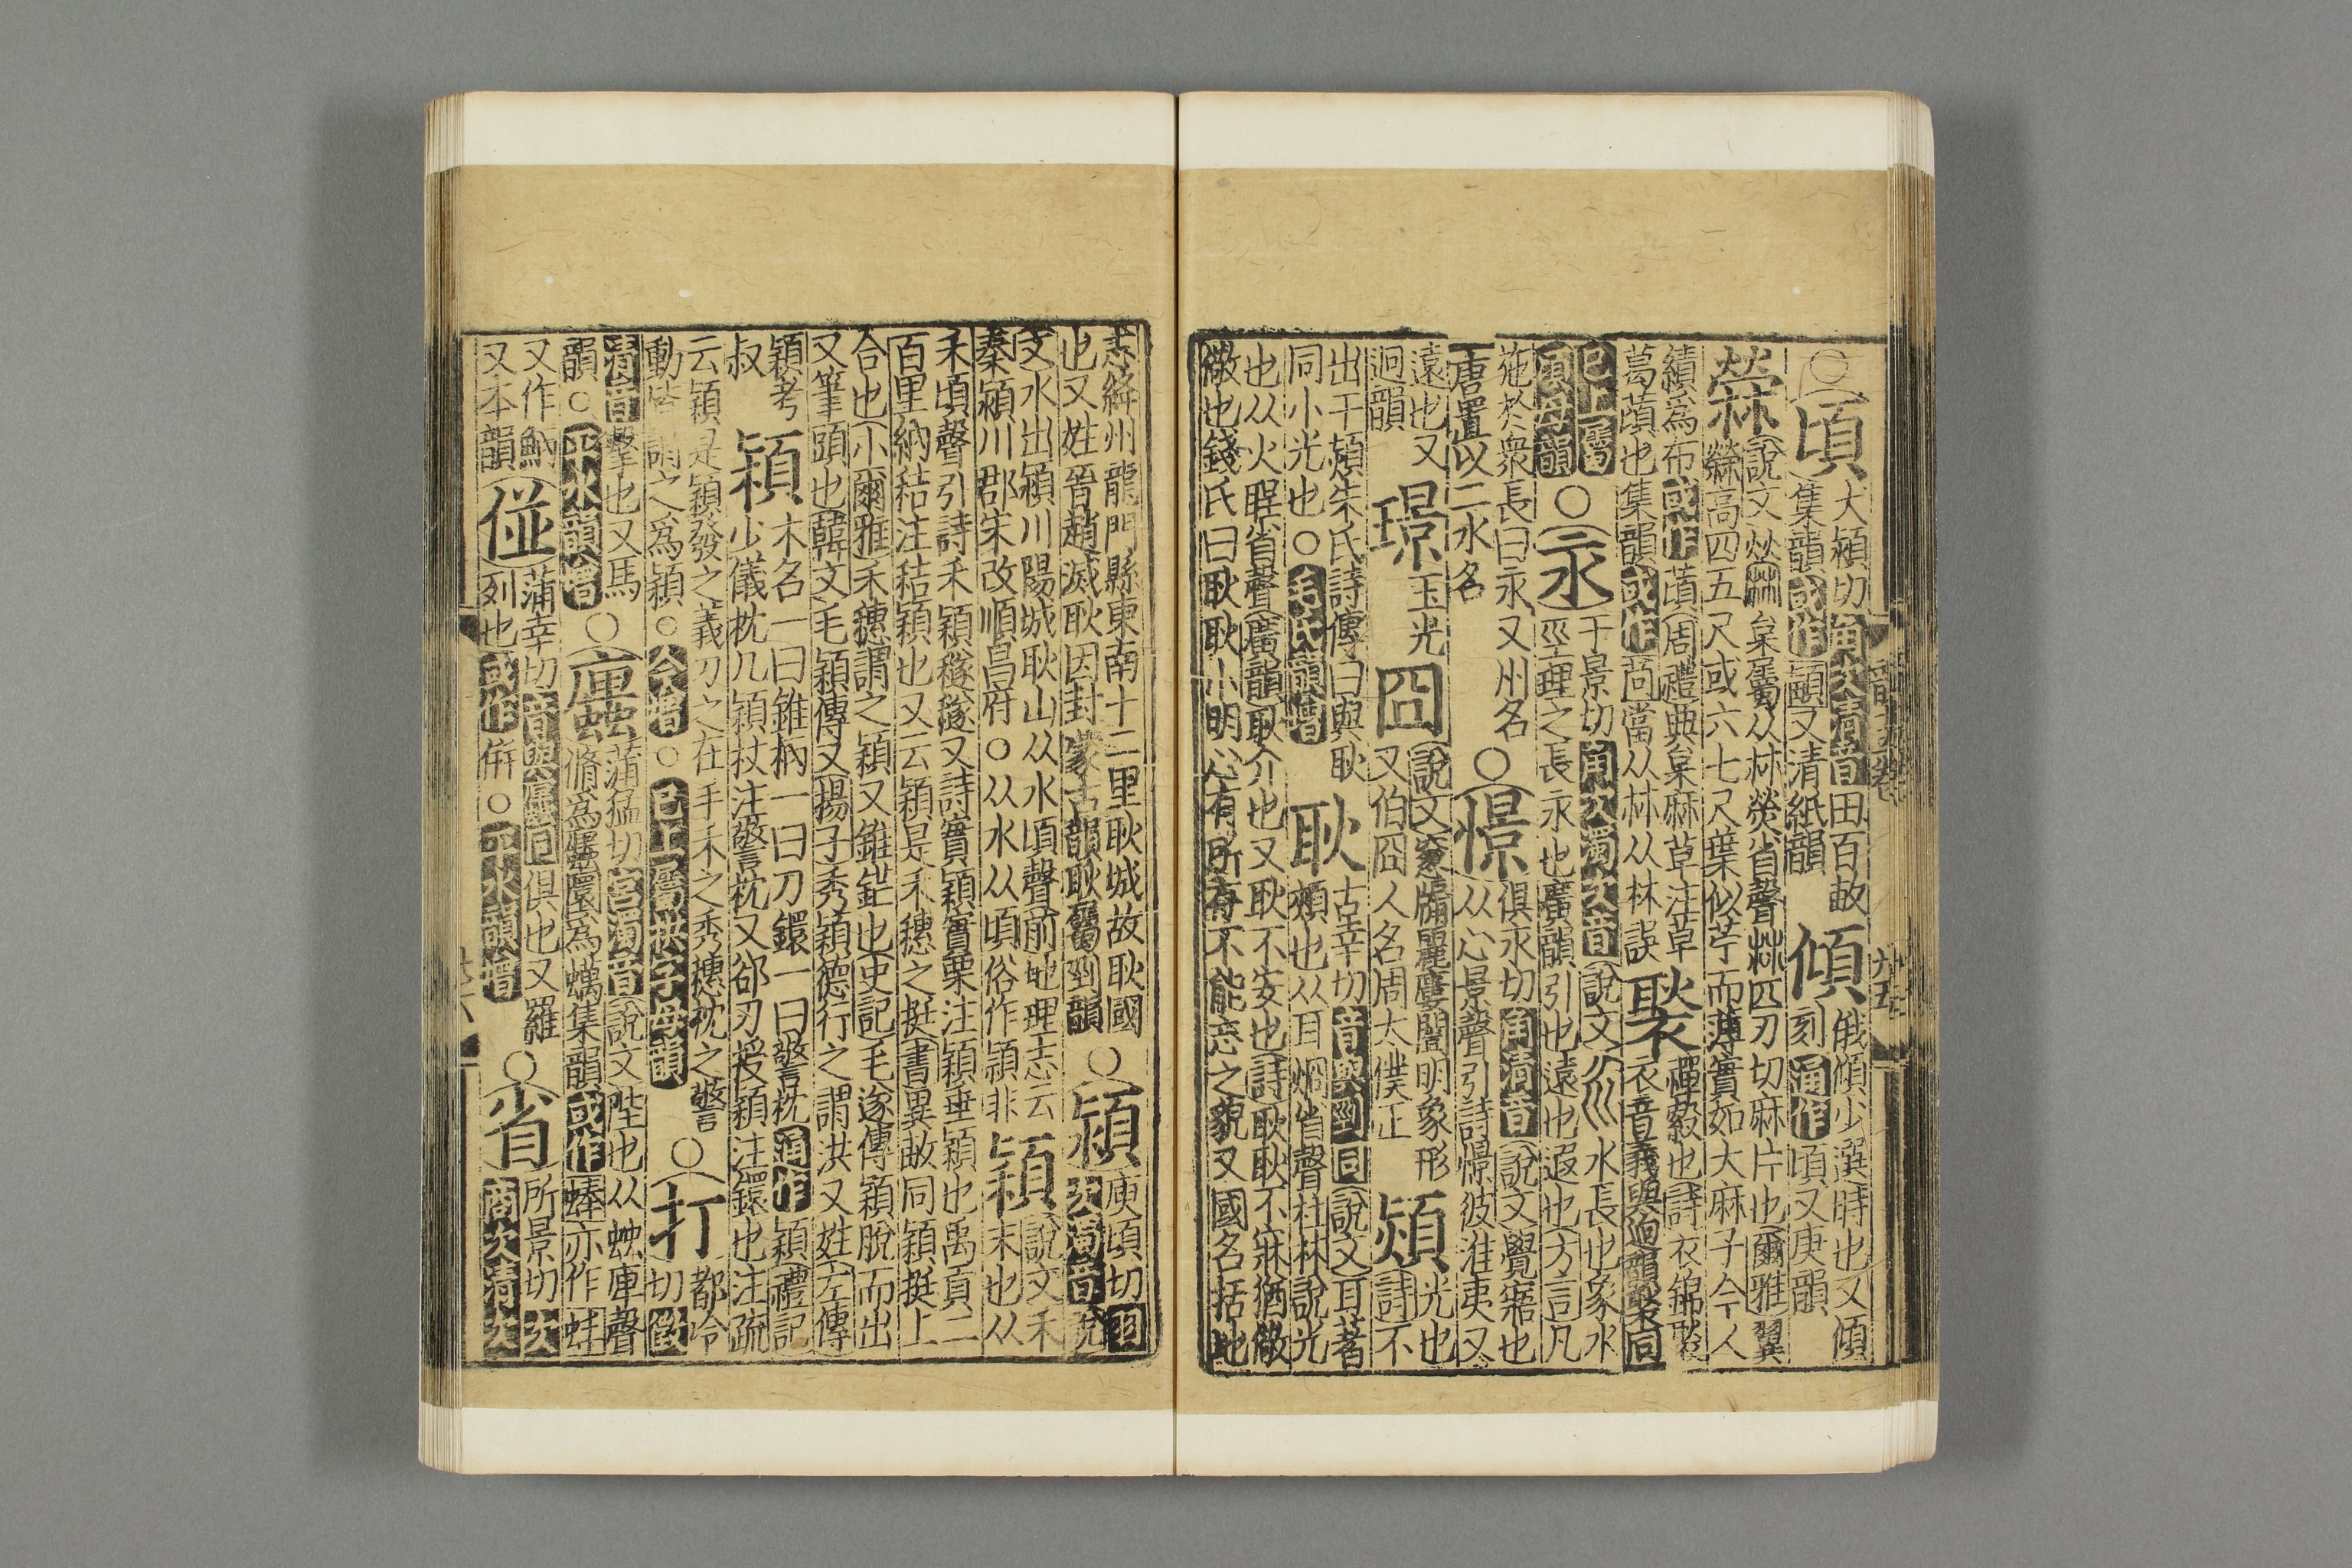 ○頃
犬潁切角次清音田百畝
集韻或作䪴又清紙韻
傾
俄傾少選時也又傾
刻通作頃又庚韻
檾
說文檾枲屬从𣏟熒省聲𣏟匹刃切麻片也爾雅翼
檾高四五尺或六七尺葉似苧而薄實如大麻子今人
績爲布或作䔛周禮典枲麻草注草
葛䔛也集韻或作苘當从𣏟从林誤
褧
襌縠也詩衣錦褧
衣音義與迥韻褧同
已上屬
頃母韻
○永
于景切角次濁次音說文 水長也象水
巠理之長永也廣韻引也遠也遐也方言凡
施於衆長曰永又州名
唐置以二水名
○憬
俱永切角清音說文覺寤也
从心景聲引詩憬彼淮夷又
遠也又
迥韻
璟
玉光
囧
說文窻牖麗廔闓明象形
又伯囧人名周太僕正
熲
光也
詩不
出于熲朱氏詩傳曰與耿
同小光也○毛氏韻增
耿
古幸切音與剄同說文耳著
頰也从耳烓省聲杜林說光
也从火聖省聲廣韻耿介也又耿不安也詩耿耿不寐猶儆
儆也錢氏曰耿耿小明心有所存不能忘之貌又國名括地
韻五卷
九五
志絳州龍門縣東南十二里耿城故耿國
也又姓晉趙滅耿因封蒙古韻耿屬剄韻
○潁
庾頃切羽
次濁音說
文水出潁川陽城耿山从水頃聲前地理志云
秦潁川郡宋改順昌府○从水从頃俗作頴非
穎
說文禾
末也从
禾頃聲引詩禾穎穟穟又詩實穎實栗注穎垂穎也禹貢二
百里納秸注秸穎也又云穎是禾穗之挺書異畝同穎挺上
合也小爾雅禾穗謂之穎又錐鋩也史記毛遂傳穎脫而出
又筆頭也韓文毛穎傳又揚子秀穎德行之謂洪又姓左傳
穎考
叔
頴
木名一曰錐柄一曰刀鐶一曰警枕通作穎禮記
少儀枕几穎杖注警枕又郤刃授穎注鐶也注疏
云穎是穎發之義刀之在手禾之秀穗枕之警
動皆謂之爲穎○今增○已上屬拱字母韻
○打
都冷
切徵
清音擊也又馬
韻○平水韻增
○䗫
蒲猛切宮濁音說文階也从䖵庳聲
脩爲䗫圜爲蠣集韻或作蜯亦作蛘
又作䱓
又本韻
○㑟
蒲幸切音與䗫同俱也又羅
列也或作併○平水韻增
○省
所景切次
商次清次